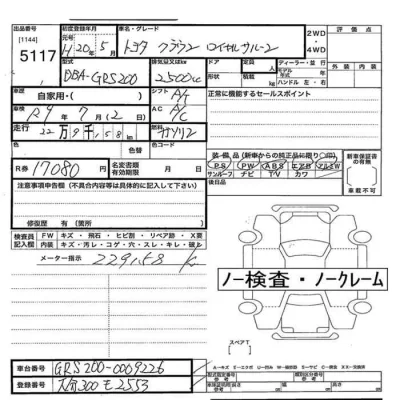 出品番号
[1144]
5117
初度登録年月
元号 年 月
H20年5月
車名・グレード
トヨタ クラウン ロイヤルサルーン
2WD
・
4WD
評価点
型式
DBA-GRS200
排気量又は積
2500cc
ドア
形状
定員
人
積載量
kg
ディーラー・並行
モデル年式 年
ハンドル 左・右
外装
内装
車歴
自家用・( )
シフト
AT
正常に機能するセールスポイント
車検
R9年7月(2)日
A/C
AC
走行
22万9千158km
燃料
ガソリン
色
色替
色コード
R券
17080円
名変書類有効期限
月 日
装備品(新車からの純正品に限り○印)
PS PW ABS エア B アルミW
サンルーフ ナビ T/V カワ
新車保証書の有無
車載不可
注意事項申告欄(不具合内容等は具体的に記入して下さい)
後日品
修復歴 有(箇所 )
検査員記入欄
FW キズ・飛石・ヒビ割・リペア跡・X要
内装 キズ・汚レ・コゲ・穴・スレ・キレ・破レ
メーター指示 229158 k
ノー検査・ノークレーム
スペアT
車台番号
GRS200-0009226
登録番号
大命300モ2553